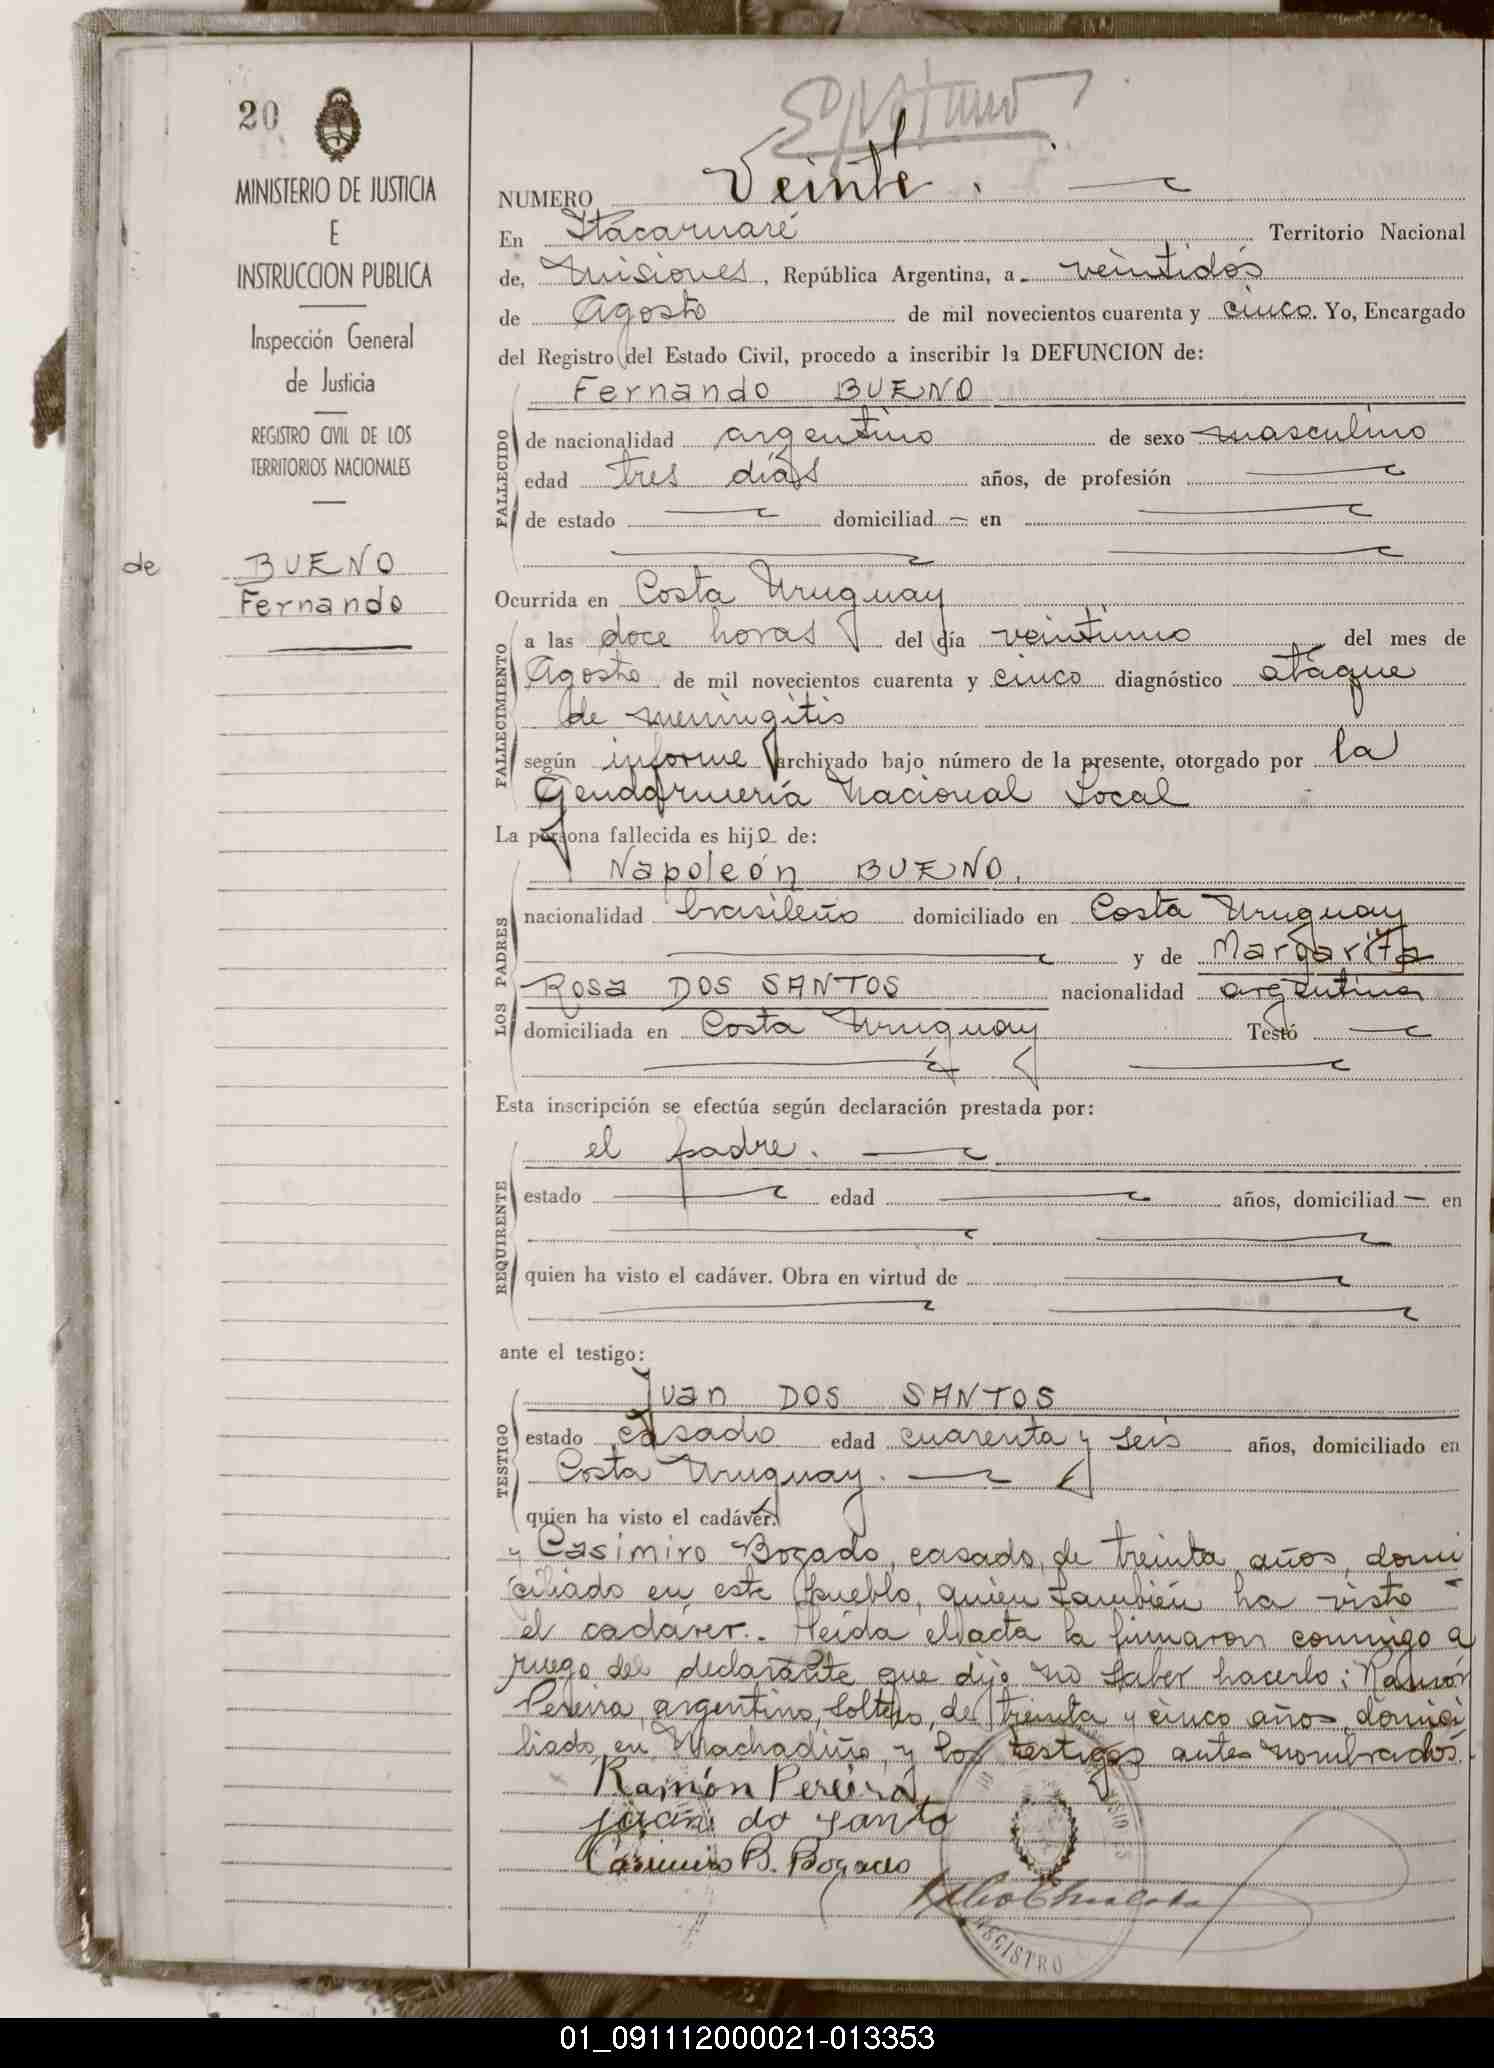 20
MINISTERIO DE JUSTICIA
E
INSTRUCCION PUBLICA
Inspección General
de Justicia
REGISTRO CIVIL DE LOS
TERRITORIOS NACIONALES
de BUENO
Fernando
NUMERO Veinte.
En Itacaruaré Territorio Nacional
de, Misiones, República Argentina, a veintidós
de Agosto de mil novecientos cuarenta y cinco. Yo, Encargado
del Registro del Estado Civil, procedo a inscribir la DEFUNCION de:
Fernando BUENO
FALLECIDO
de nacionalidad argentino de sexo masculino
edad tres días años, de profesión
de estado domiciliad en
Ocurrida en Costa Uruguay
FALLECIMIENTO
a las doce horas del día veintiuno del mes de
Agosto de mil novecientos cuarenta y cinco diagnóstico ataque
de meningitis
según informe archivado bajo número de la presente, otorgado por la
Gendarmería Nacional Local
La persona fallecida es hijo de:
Napoleón BUENO,
LOS PADRES
nacionalidad brasileño domiciliado en Costa Uruguay
y de Margarita
Rosa DOS SANTOS nacionalidad argentina
domiciliada en Costa Uruguay Testó
Esta inscripción se efectúa según declaración prestada por:
el padre.
REQUIRENTE
estado edad años, domiciliad en
quien ha visto el cadáver. Obra en virtud de
ante el testigo:
Juan DOS SANTOS
TESTIGO
estado casado edad cuarenta y seis años, domiciliado en
Costa Uruguay.
quien ha visto el cadáver.
y Casimiro Bogado, casado, de treinta años, domi
ciliado en este pueblo, quien también ha visto
el cadáver. Leída el acta la firmaron conmigo a
ruego del declarante que dijo no saber hacerlo: Ramón
Pereira, argentino, soltero, de treinta y cinco años, domici
liado en Machadiño, y los testigos antes nombrados.
Ramón Pereira
do santo
Casimiro B. Bogado
REGISTRO
01_091112000021-013353